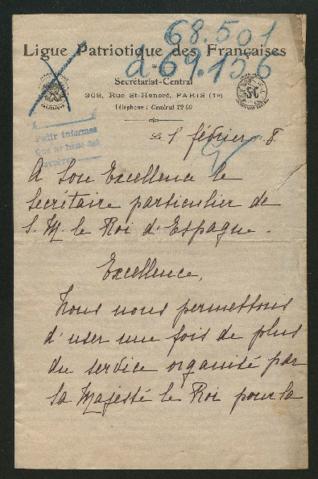 68.501
Ligue Patriotique des Françaises
d-69.156
Secrétariat-Central
368, Rue St-Honoré, PARIS (1er)
Téléphone : Central
février 8
Pedir informes
A Son Excellence le
Secrétaire particulier de
S. M. le Roi d'Espagne.
Excellence,
Nous nous permettons
d'user une fois de plus
du service organisé par
Sa Majesté le Roi pour la